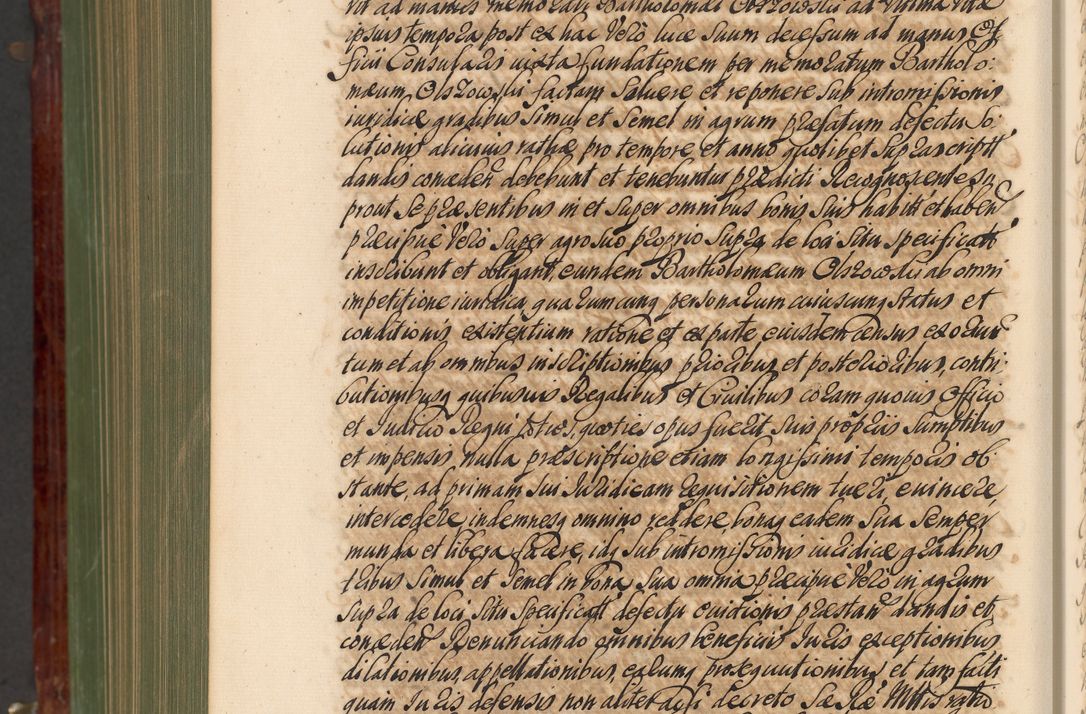 rit ad manus memorati Bartholomæi Olszowski ad ultima vitæ
ipsius tempora post ex hac verò luce suum decessum ad manus Of
ficii Consularis iuxta fundationem per memoratum Bartholo:
mæum Olszowski factam solvere et reponere sub intromissionis
iuridicæ gradibus simul et semel in agrum præfatum defectu so
lutionis alicuius rathæ pro tempore et anno quolibet suprascriptt
dandis conceden debebunt et tenebuntur prædicti Recognoscentes
prout se præsentibus in et super omnibus bonis suis habitt et haben
præcipuè verò super agro suo proprio supra de loci situ specificato
inscribunt et obligant, eundem Bartholomæum Olszowski ab omni
impetitione iuridica quarumcunq personarum cuiuscunq status et
conditionis existentium ratione et ex parte eiusdem census exoriun
tum et ab omnibus inscriptionibus prioribus et posterioribus, contri
butionibusq quibusuis Regalibus et Civilibus coram quovis Officio
et Iudicio Regni toties, quoties opus fuerit suis propriis sumptibus
et impensis nulla præscriptione etiam longissimi temporis ob
stante, ad primam sui Iuridicam requisitionem tueri, euincere,
intercedere, indemnesq omnino reddere, bonaq eadem sua semper
munda et libera facere, idq sub intromissionis iuridicæ gradibus
tribus simul et semel in bona sua omnia præcipuè verò in agrum
supra de loci situ specificatt defectu euictionis præstan dandis et
conceden Renunciando omnibus beneficiis Iuris exceptionibus
dilationibus, appellationibus, earumq prosequutionibus, et tam facti
quam Iuris defensis non aliter nisi decreto Sæ Ræ Mttis ratio